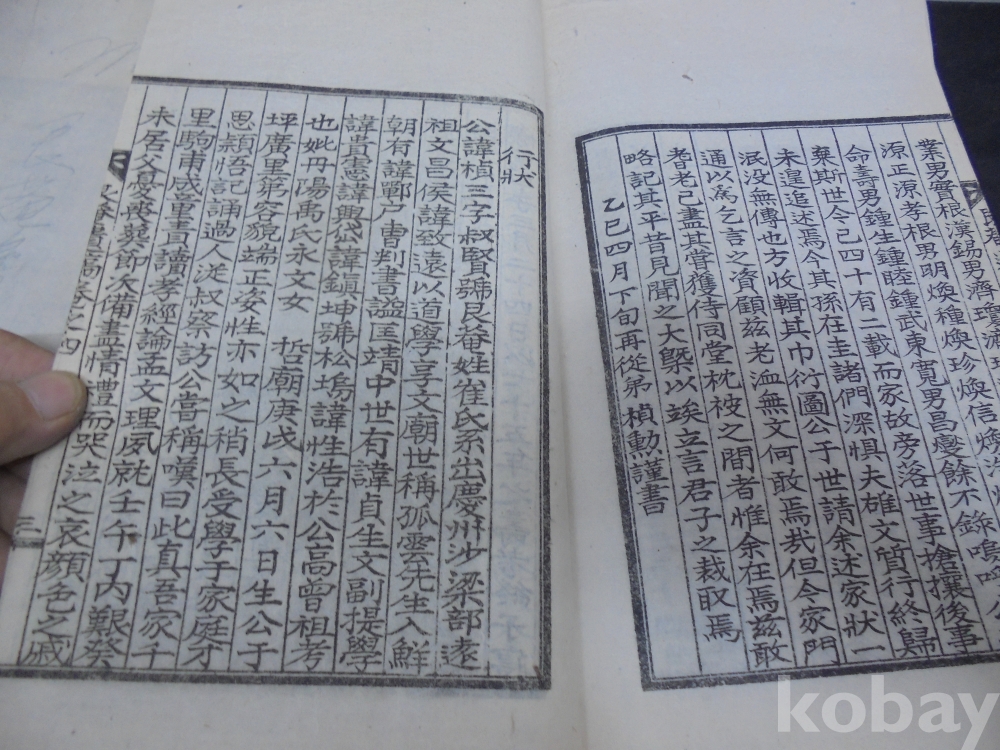 業男實根漢錫男濟
源正源孝根男明煥種煥珍煥信煥
命壽男鍾生鍾睦鍾武東寬男昌燮餘不錄嗚呼
棄斯世今已四十有二載而家故旁落世事搶攘後事
未遑追述焉今其孫在圭諸們深懼夫雄文質行終歸
泯沒無傳也方收輯其巾衍圖公于世請余述家狀一
通以爲乞言之資顧玆老洫無文何敢焉哉但今家門
耆老已盡其嘗獲侍同堂枕被之間者惟余在焉玆敢
略記其平昔見聞之大槩以竢立言君子之裁取焉
乙巳四月下旬再從弟 楨勳謹書
行狀
公諱楨三字叔賢號艮菴姓崔氏系出慶州沙梁部遠
祖文昌侯諱致遠以道學享文廟世稱孤雲先生入鮮
朝有諱鄲戶曹判書謚匡靖中世有諱貞生文副提學
諱貴憲諱興岱諱鎭坤號松塢諱性浩於公高曾祖考
也妣丹陽禹氏永文女 哲廟庚戌六月六日生公于
坪廣里第容貌端正姿性亦如之稍長受學于家庭才
思穎悟記誦過人從叔察訪公嘗稱嘆曰此眞吾家千
里駒甫成童書讀孝經論孟文理夙就壬午丁內艱癸
未居父憂喪葬節次備盡情禮而哭泣之哀顔色之戚
卷之四
三
kobay